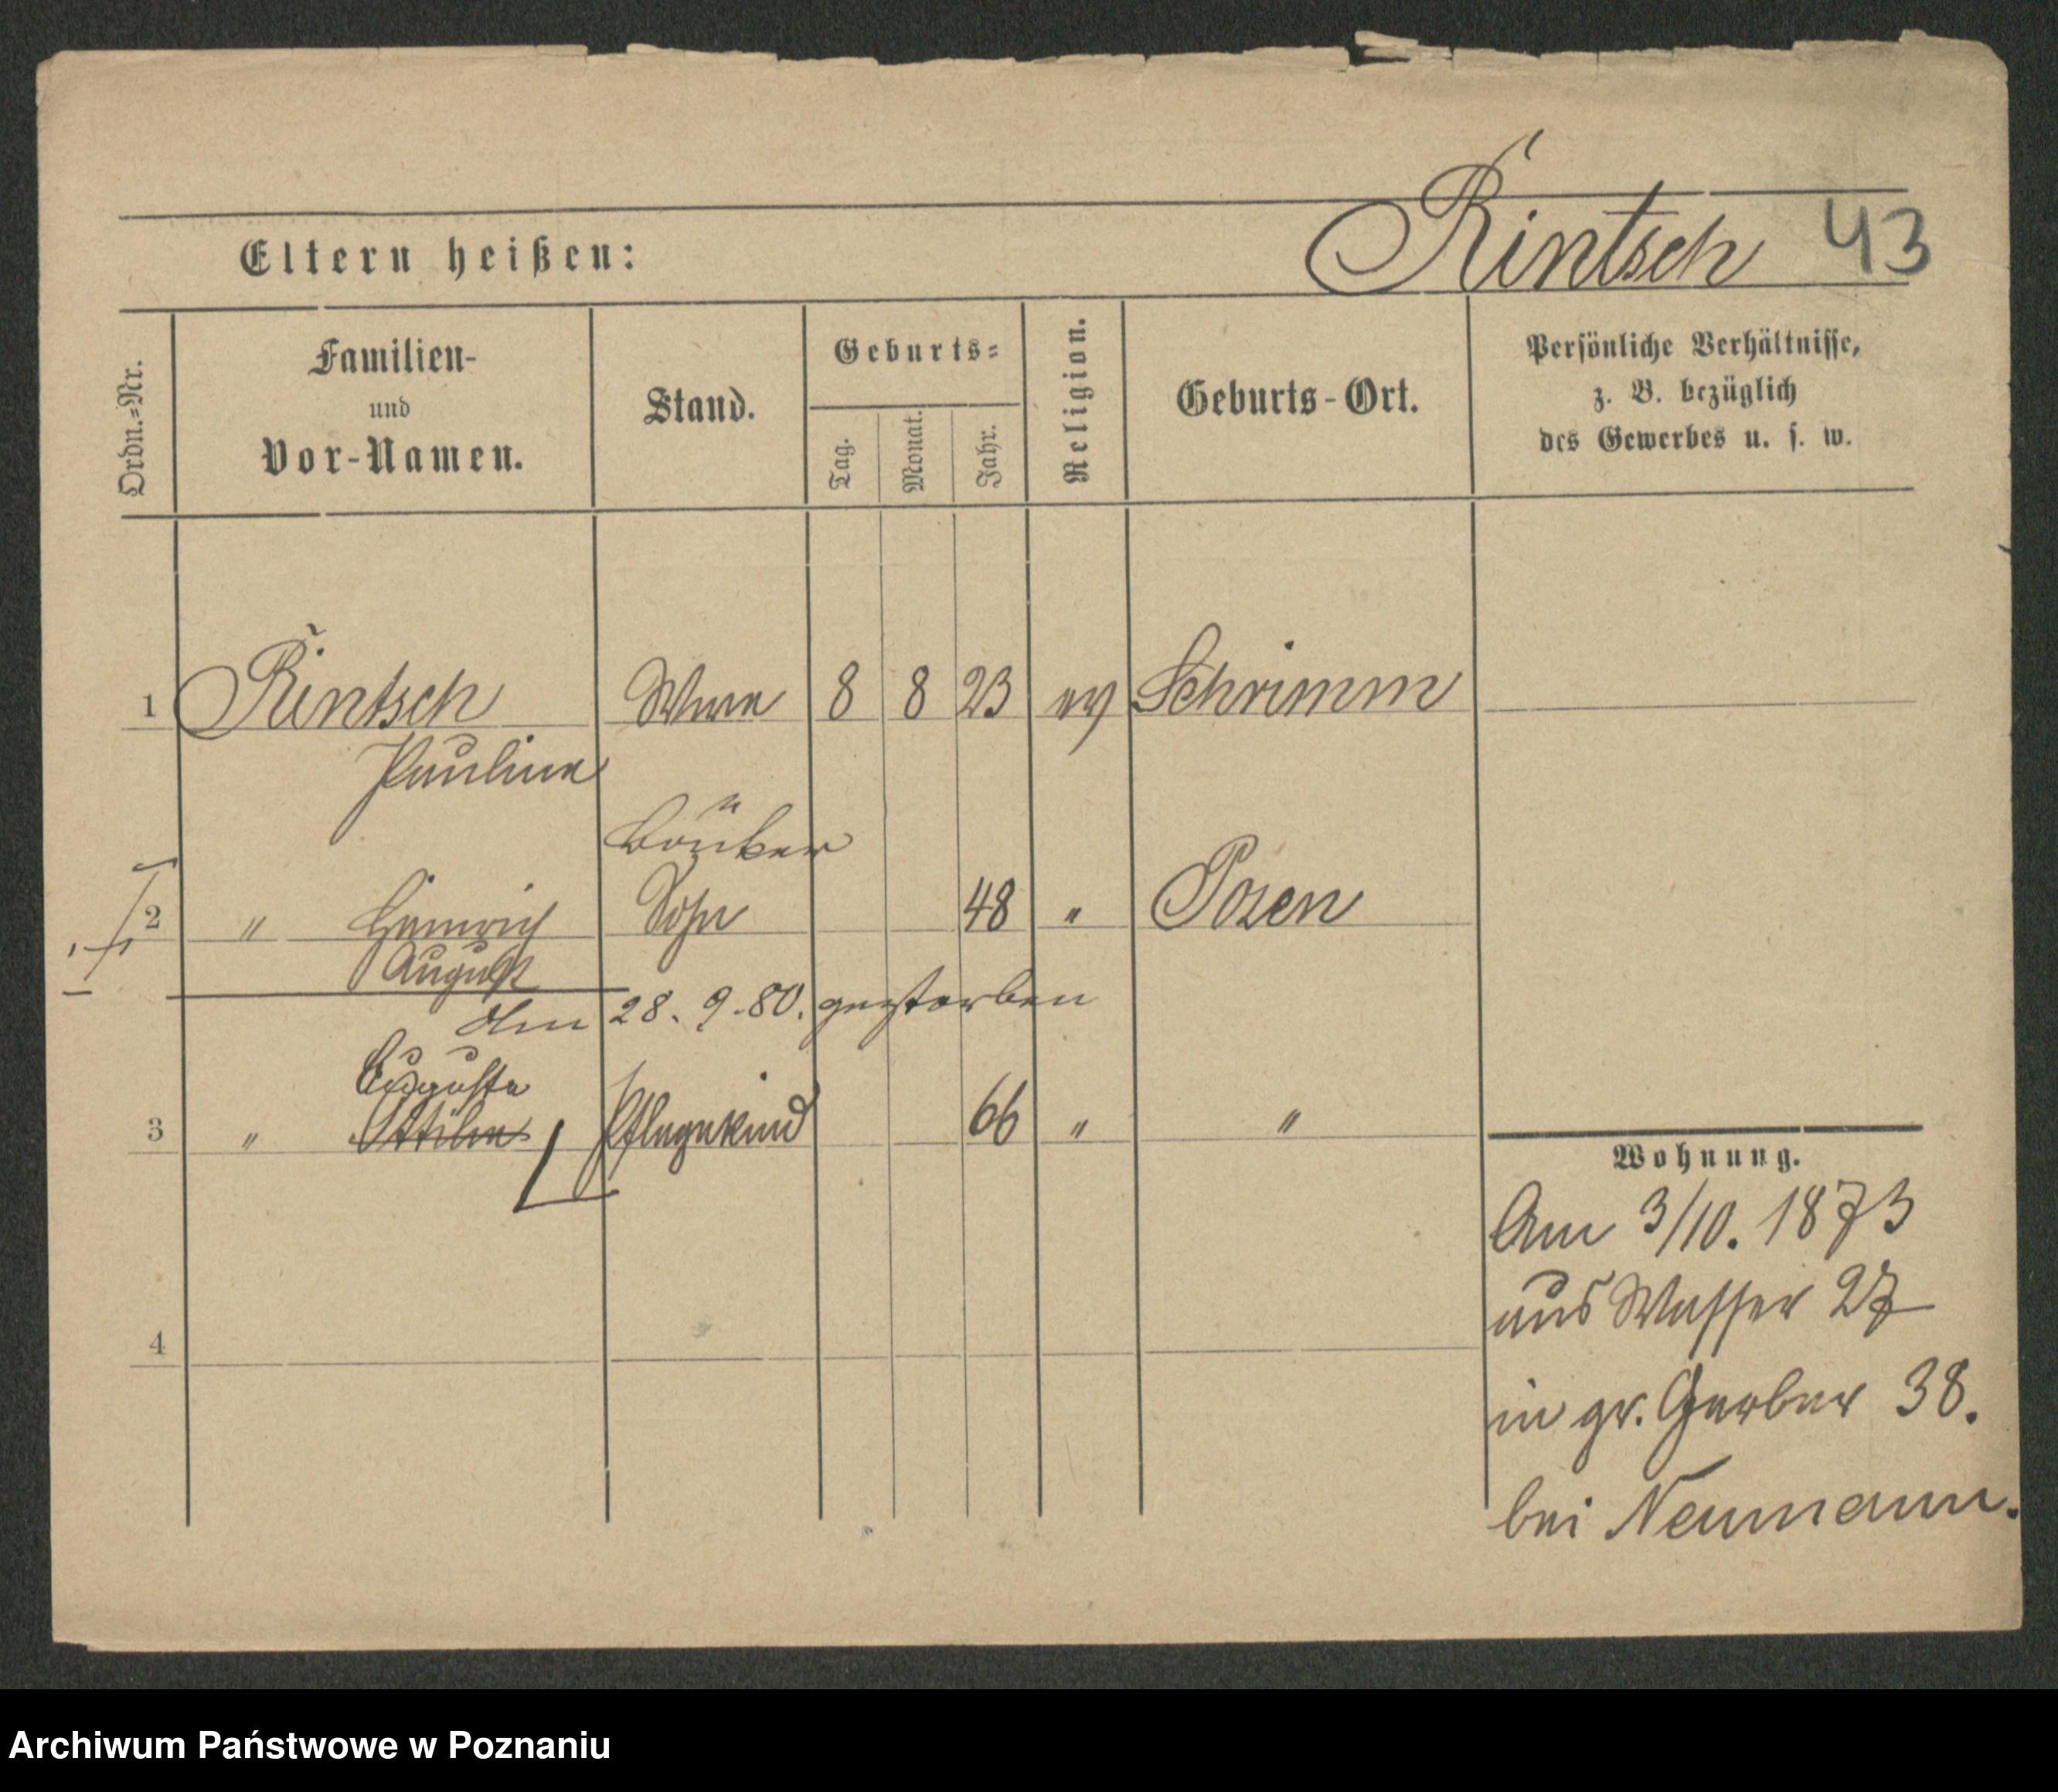 Rintsch 43
Eltern heißen:
Ordn.=Nr.
Familien-
und
Vor-Namen.
Stand.
Geburts=
Tag.
Monat.
Jahr.
Religion.
Geburts-Ort.
Persönliche Verhältnisse,
z. B. bezüglich
des Gewerbes u. s. w.
1 Rintsch Wwe 8 8 23 ev Schrimm
Pauline
2 " Heinrich Sohn 48 " Posen
August
Am 28. 9. 80. gestorben
Auguste
3 " Ottilie Pflegekind 66 " "
4
Wohnung.
Am 3/10. 1873
aus Wasser 27
in gr. Gerber 38.
bei Neumann.
Archiwum Państwowe w Poznaniu